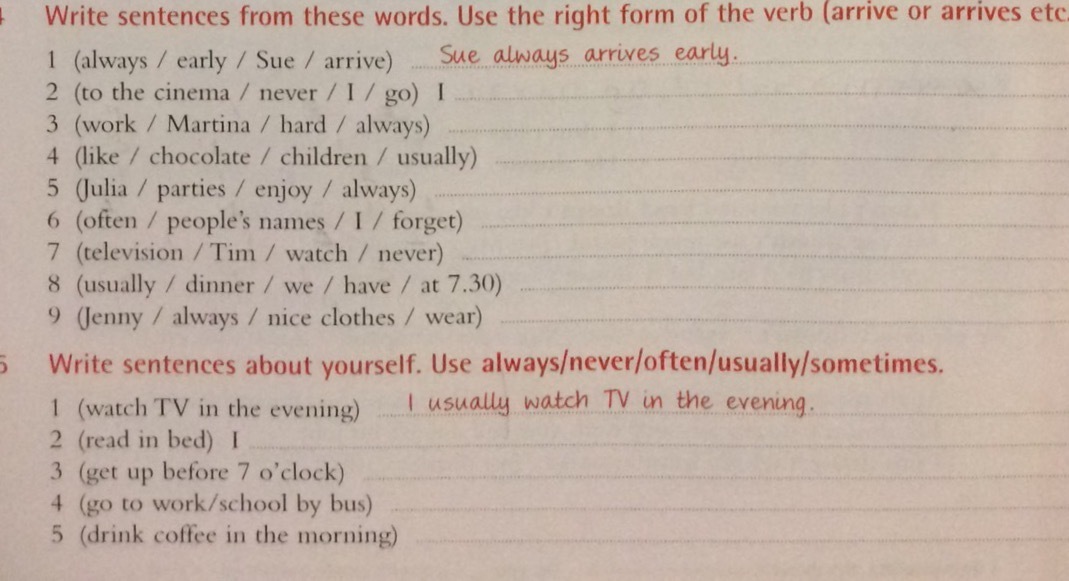 Write sentences from these words. Use the right form of the verb (arrive or arrives etc.
1 (always / early / Sue / arrive) Sue always arrives early.
2 (to the cinema / never / I / go) I
3 (work / Martina / hard / always)
4 (like / chocolate / children / usually)
5 (Julia / parties / enjoy / always)
6 (often / people's names / I / forget)
7 (television / Tim / watch / never)
8 (usually / dinner / we / have / at 7.30)
9 (Jenny / always / nice clothes / wear)
5 Write sentences about yourself. Use always/never/often/usually/sometimes.
1 (watch TV in the evening) I usually watch TV in the evening.
2 (read in bed) I
3 (get up before 7 o'clock)
4 (go to work/school by bus)
5 (drink coffee in the morning)